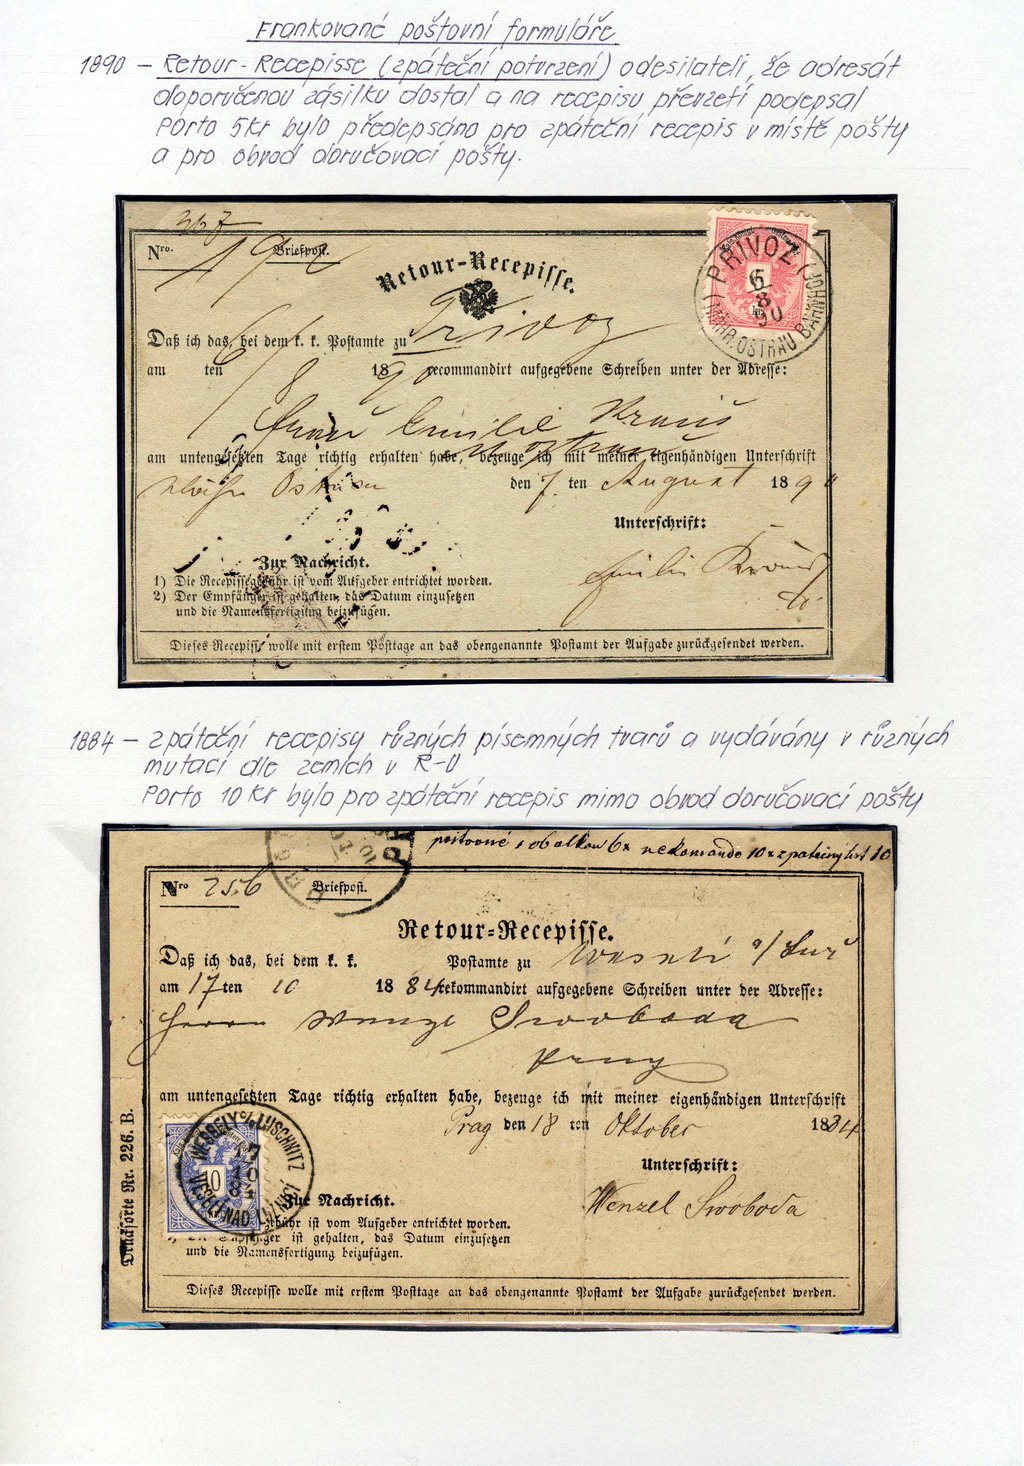 Frankované poštovní formuláře
1890 – Retour-Recepisse (zpáteční potvrzení) odesilateli, že adresát
doporučenou zásilku dostal a na recepisu převzetí podepsal
Porto 5 Kr bylo předepsáno pro zpáteční recepis v místě pošty
a pro obvod doručovací pošty.
Nro.
Briefpost.
Retour-Recepisse.
PRIVOZ (JOHNBA
(MÄHR. OSTRAU
6
8
90
Daß ich das, bei dem k. k. Postamte zu Privoz
am 6/8 ten 1890 recommandirt aufgegebene Schreiben unter der Adresse:
Frau Emilie Kraus
am untengesetzten Tage richtig erhalten habe, bezeuge ich mit meiner eigenhändigen Unterschrift
Mähr Ostrau den 7 ten August 1890
Unterschrift:
Emilie Kraus
Zur Nachricht.
1) Die Recepissegebühr ist vom Aufgeber entrichtet worden.
2) Der Empfänger ist gehalten, das Datum einzusetzen
und die Namensfertigung beizufügen.
Dieses Recepisse wolle mit erstem Posttage an das obengenannte Postamt der Aufgabe zurückgesendet werden.
1884 – zpáteční recepisy různých písemných tvarů a vydávány v různých
mutací dle zemích v R-U
Porto 10 Kr bylo pro zpáteční recepis mimo obvod doručovací pošty
poštovné s obalkou 6x rekomando 10x zpatečny list 10
Nro 256 Briefpost.
Retour-Recepisse.
Daß ich das, bei dem k. k. Postamte zu Weseli a/Luž
am 17 ten 10 1884 rekommandirt aufgegebene Schreiben unter der Adresse:
Herrn Wenzel Swoboda
Prag
am untengesetzten Tage richtig erhalten habe, bezeuge ich mit meiner eigenhändigen Unterschrift
Prag den 18 ten Oktober 1884
Unterschrift:
Wenzel Swoboda
WESSELY a/d LUSCHNITZ
17
10
84
VESELÍ NAD LUŽNICÍ
10
Zur Nachricht.
gebühr ist vom Aufgeber entrichtet worden.
ist gehalten, das Datum einzusetzen
und die Namensfertigung beizufügen.
Dieses Recepisse wolle mit erstem Posttage an das obengenannte Postamt der Aufgabe zurückgesendet werden.
Drucksorte Nr. 226. B.